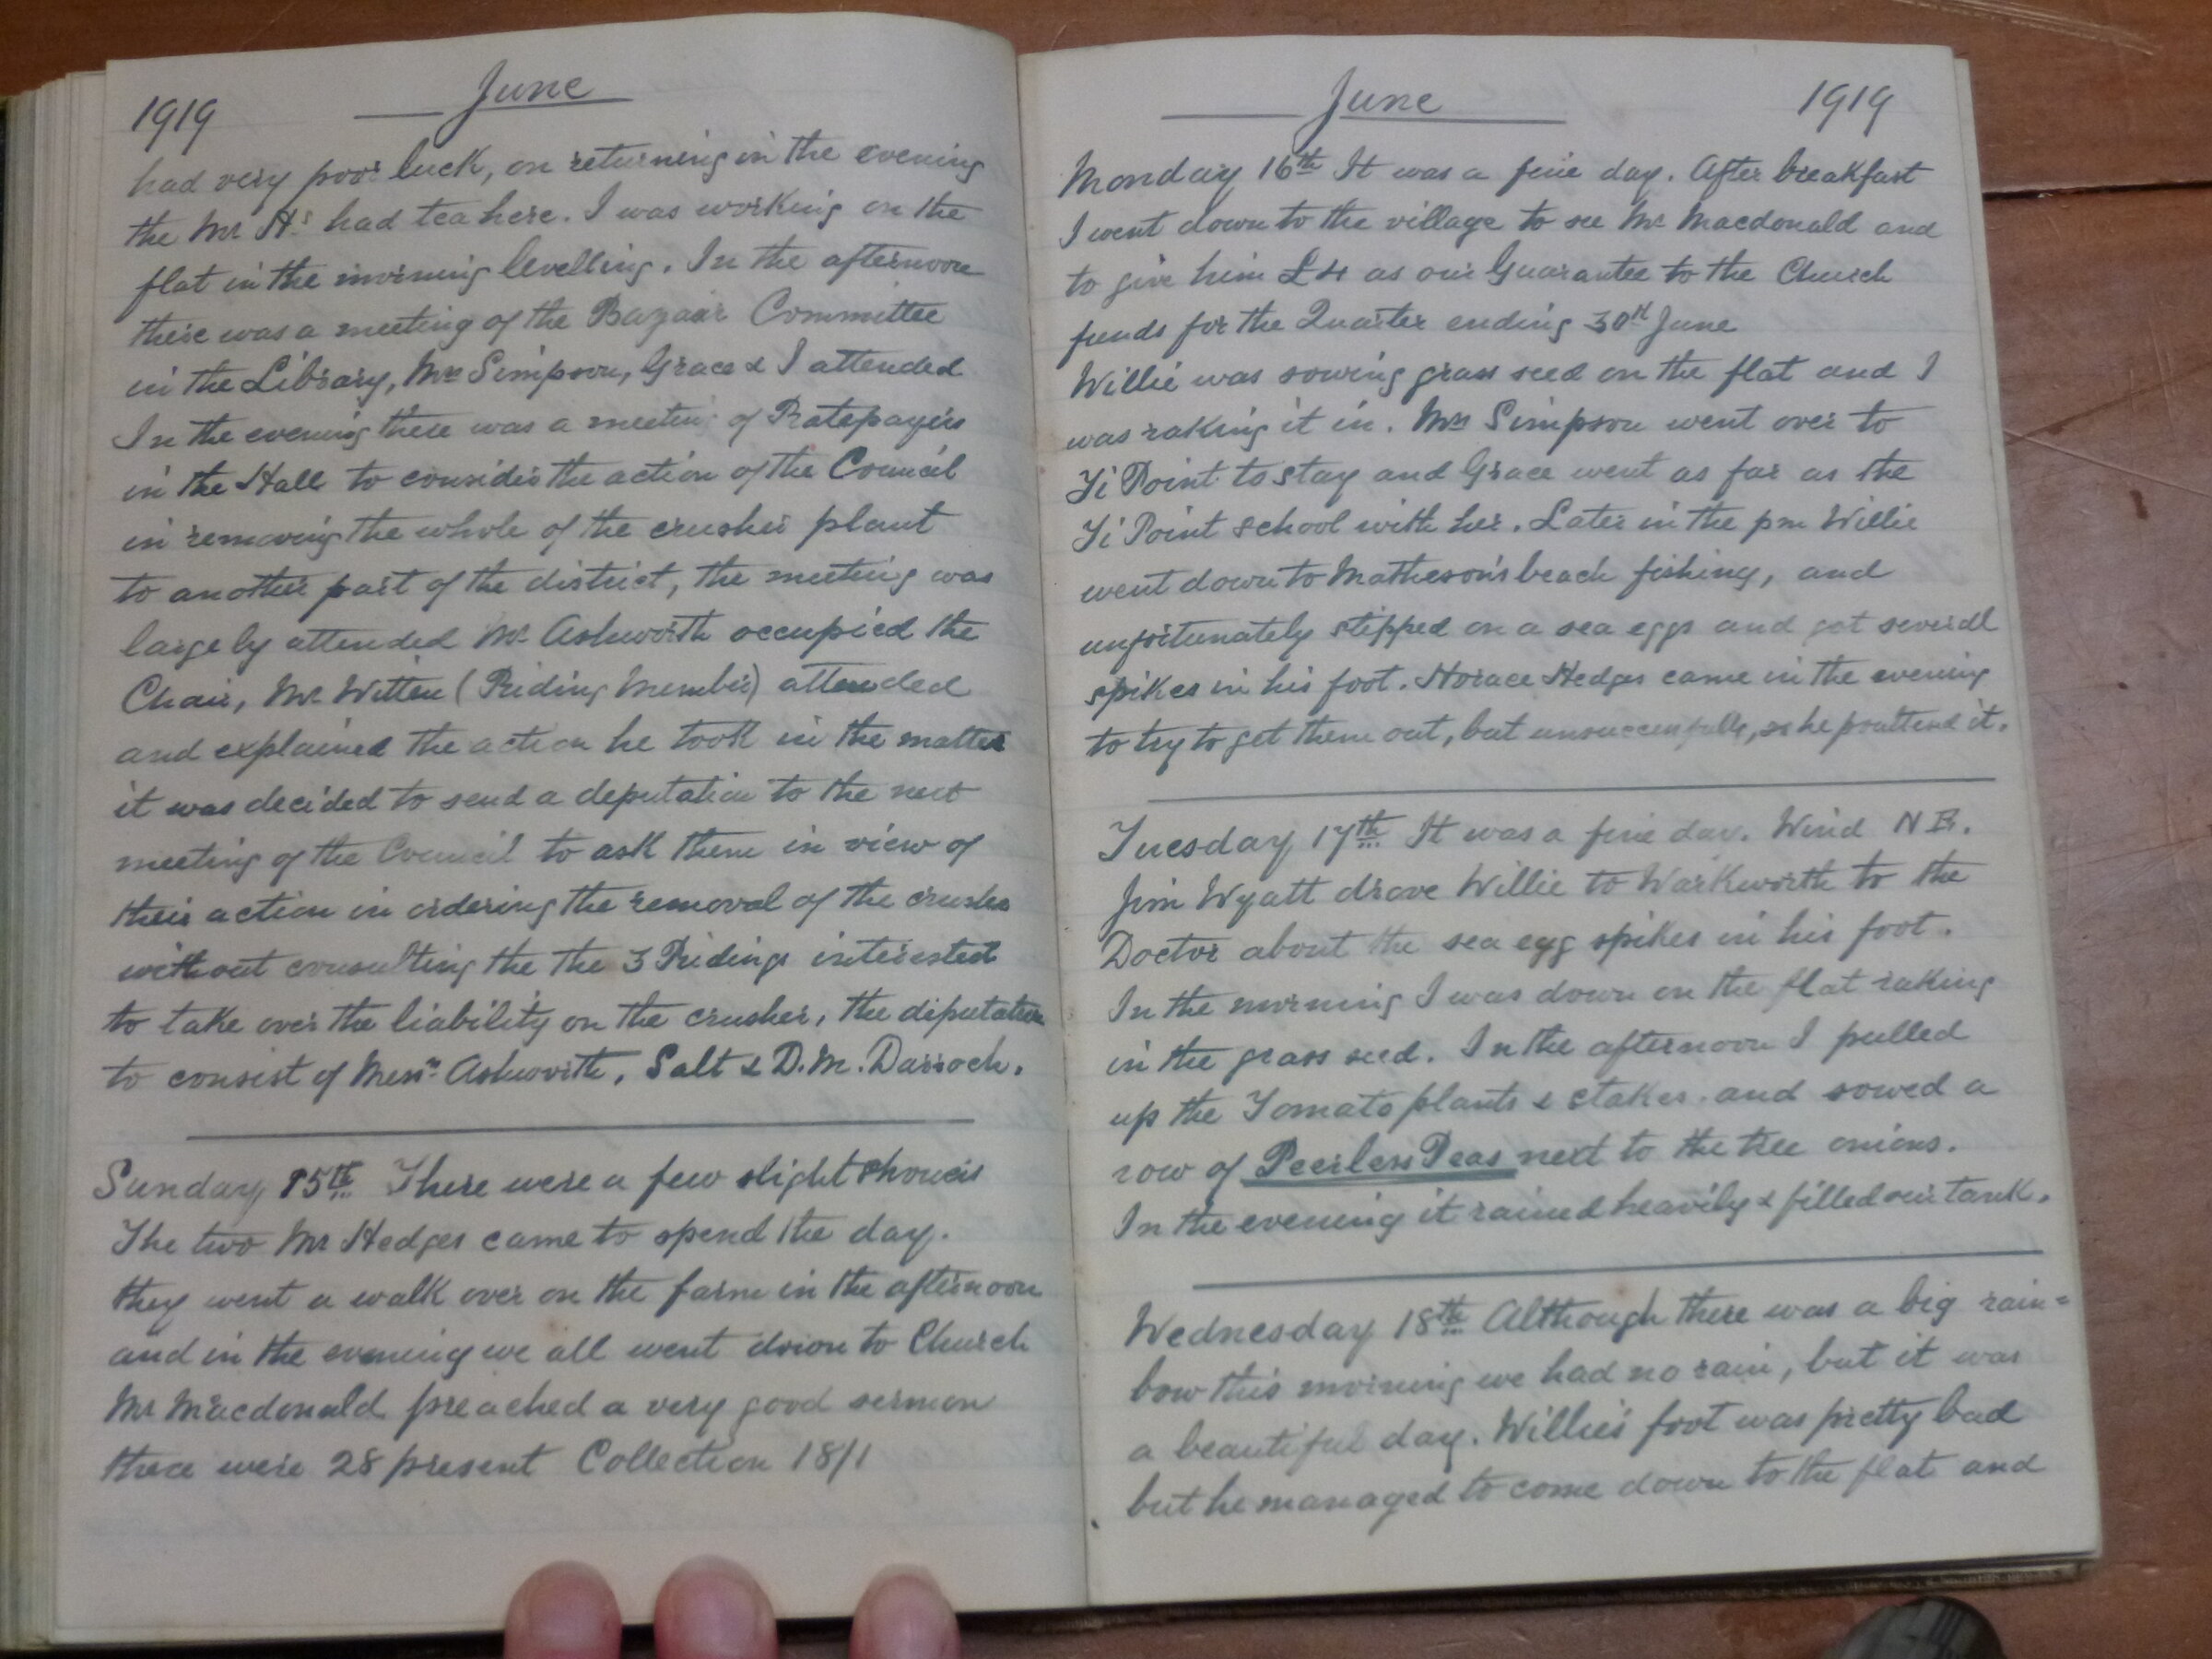 1919 June
had very poor luck, on returning in the evening
the Mr Hs had tea here. I was working on the
flat in the morning levelling. In the afternoon
there was a meeting of the Bazaar Committee
in the Library, Mrs Simpson, Grace & I attended
In the evening there was a meeting of Ratepayers
in the Hall to consider the action of the Council
in removing the whole of the crusher plant
to another part of the district, the meeting was
largely attended Mr Ashworth occupied the
Chair, Mr Witten (Riding Member) attended
and explained the action he took in the matter
it was decided to send a deputation to the next
meeting of the Council to ask them in view of
their action in ordering the removal of the crusher
without consulting the the 3 Ridings interested
to take over the liability on the crusher, the deputation
to consist of Messrs Ashworth, Salt & D.M. Darroch.
Sunday 15th There were a few slight showers
The two Mr Hedges came to spend the day.
they went a walk over on the farm in the afternoon
and in the evening we all went down to Church
Mr Macdonald preached a very good sermon
there were 28 present Collection 18/1
June 1919
Monday 16th It was a fine day. After breakfast
I went down to the village to see Mr Macdonald and
to give him £4 as our Guarantee to the Church
funds for the Quarter ending 30th June
Willie was sowing grass seed on the flat and I
was raking it in. Mrs Simpson went over to
Ti Point to stay and Grace went as far as the
Ti Point school with her. Later in the pm Willie
went down to Matheson's beach fishing, and
unfortunately slipped on a sea eggs and got several
spikes in his foot. Horace Hedges came in the evening
to try to get them out, but unsuccessfully, so he poulticed it.
Tuesday 17th It was a fine day. Wind N E.
Jim Wyatt drove Willie to Warkworth to the
Doctor about the sea egg spikes in his foot.
In the morning I was down on the flat raking
in the grass seed. In the afternoon I pulled
up the Tomato plants & stakes. and sowed a
row of Peerless Peas next to the tree onions.
In the evening it rained heavily & filled our tank.
Wednesday 18th Although there was a big rain=
bow this morning we had no rain, but it was
a beautiful day. Willie's foot was pretty bad
but he managed to come down to the flat and